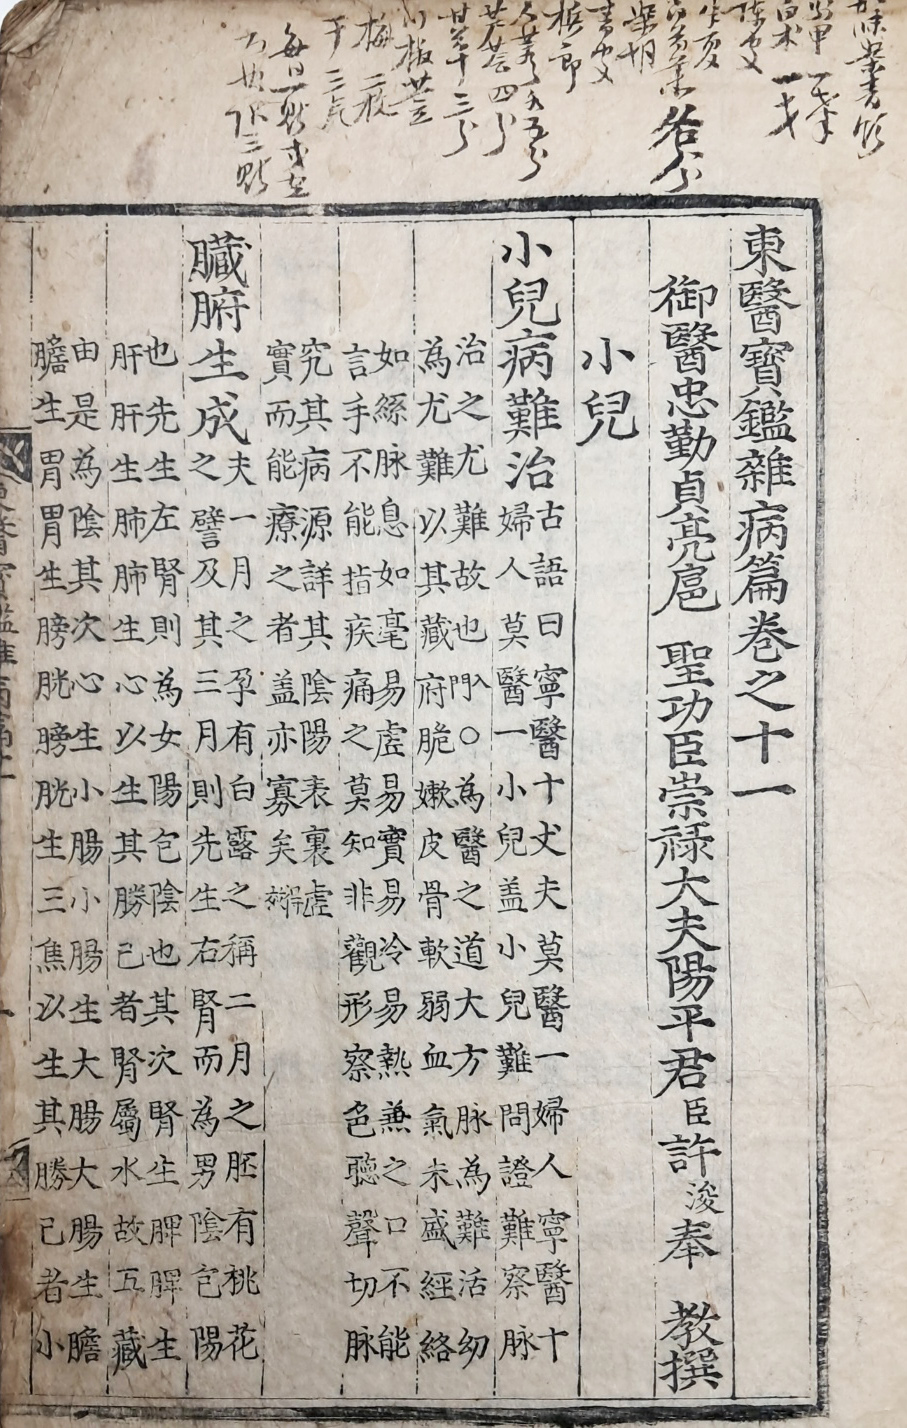 白朮一戔
陳皮
柴胡
靑皮
各分
甘草三分
梅二枚
東醫寶鑑雜病篇卷之十一
御醫忠勤貞亮扈 聖功臣崇祿大夫陽平君臣許浚奉 敎撰
小兒
小兒病難治
古語曰寧醫十丈夫莫醫一婦人寧醫十
婦人莫醫一小兒盖小兒難問證難察脉
治之尤難故也入門○為醫之道大方脉為難活幼
為尤難以其藏府脆嫩皮骨軟弱血氣未盛經絡
如絲脉息如毫易虗易實易冷易熱兼之口不能
言手不能指疾痛之莫知非觀形察色聽聲切脉
究其病源詳其陰陽表裏虗
實而能療之者盖亦寡矣得効
臟腑生成
夫一月之孕有白露之稱二月之胚有桃花
之譬及其三月則先生右腎而為男陰包陽
也先生左腎則為女陽包陰也其次腎生脾脾生
肝肝生肺肺生心以生其勝己者腎屬水故五藏
由是為陰其次心生小腸小腸生大腸大腸生膽
膽生胃胃生膀胱膀胱生三焦以生其勝己者小